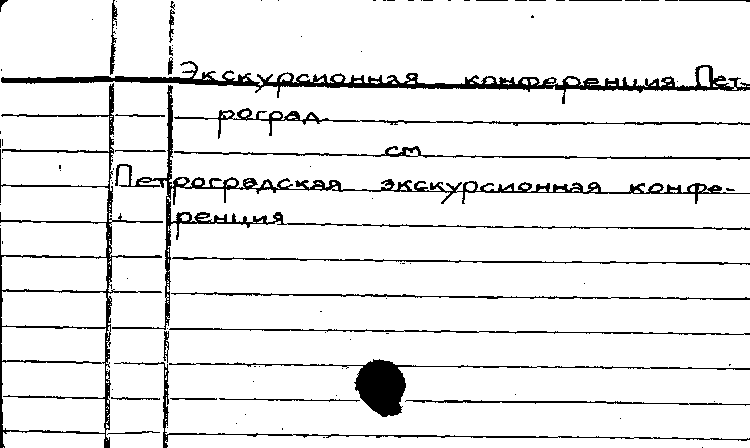 Экскурсионная конференция Пет-
роград
см
Петроградская экскурсионная конфе-
ренция